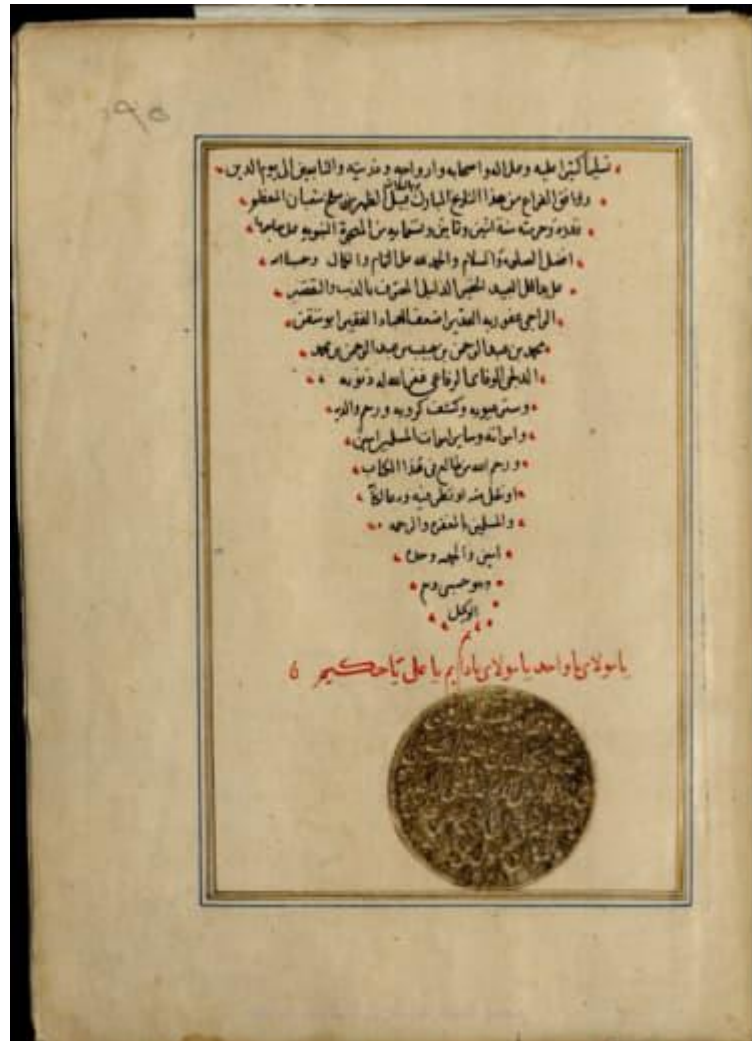 تسليما كثيرا عليه وعلى اله واصحابه وازواجه وذريته والتابعين الى يوم الدين
ووافق الفراغ من هذا التاريخ المبارك قبل الظهر في سلخ شعبان المعظم
قدره وحرمته سنة اثنين وثمانين وتسعمايه من الهجرة النبويه على صاحبها
افضل الصلوه والسلام والحمد لله على التمام والكمال وحسبنا الله
على يد اقل العبيد الحقير الذليل المعترف بالذنب والتقصير
الراجي عفو ربه القدير اضعف العباد الفقير ابو
محمد بن عبد الرحمن بن عبد الرحمن بن محمد
الوفاى الرفاعي غفر الله له ذنوبه
وستر عيوبه وكشف كروبه ورحم والديه
وامواته وساير اموات المسلمين امين
ورحم الله من طالع في هذا الكتاب
او نقل منه او نظر فيه ودعا له
والمسلمين بالمغفره والرحمه
امين والحمد لله وحده
وهو حسبي ونعم
الوكيل
يا مولاى يا واحد يا مولاى يا دايم يا على يا حكيم